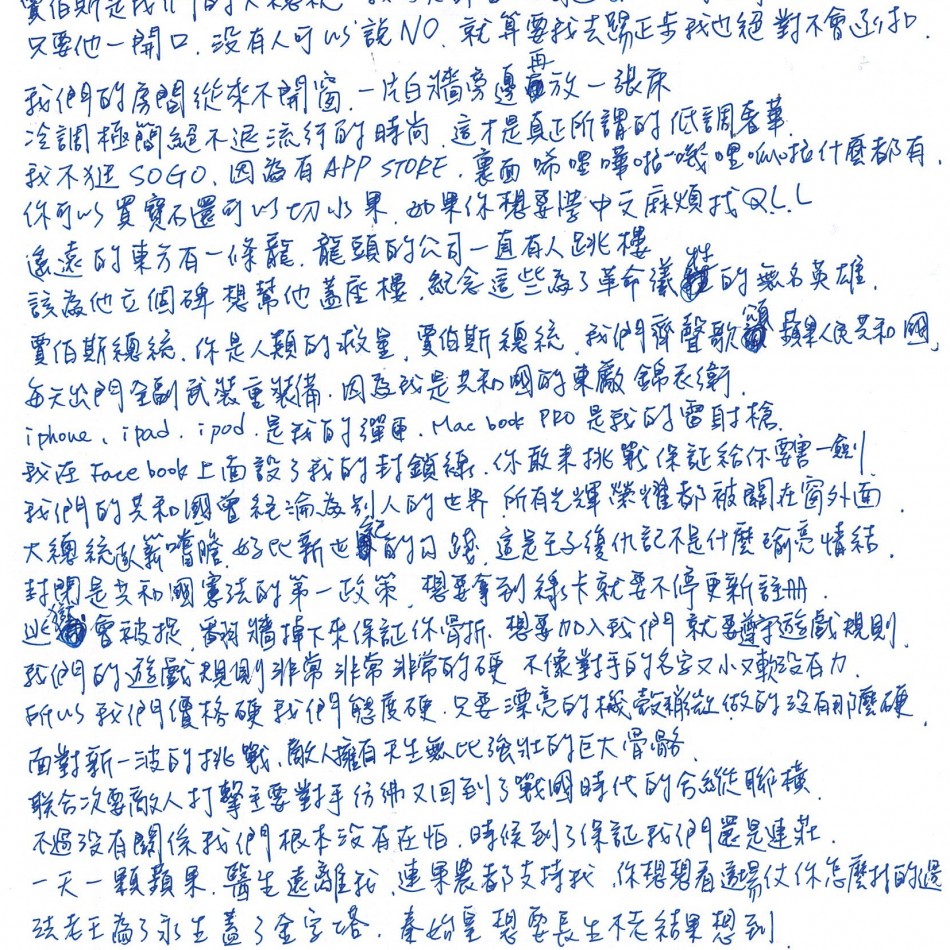 賈伯斯是我們的大總統
只要他一開口，沒有人可以說NO．就算要我去踢正步我也絕對不會逐扣．
我們的房間從來不開窗．一片白牆旁邊再放一張床
冷調極簡絕不退流行的時尚．這才是真正所謂的低調奢華．
我不逛SOGO．因為有APP STORE．裏面唏哩嘩啦嘰哩呱啦什麼都有．
你可以買寶石還可以切水果．如果你想要灌中文麻煩找Q.L.L
遙遠的東方有一條龍．龍頭的公司一直有人跳樓
該為他立個碑想幫他蓋座樓．紀念這些為了革命犧牲的無名英雄．
賈伯斯總統．你是人類的救星．賈伯斯總統．我們齊聲歌頌蘋果人民共和國，
每天出門全副武裝重裝備．因為我是共和國的東廠錦衣衛．
iphone、ipad．ipod．是我的彈匣．Mac book PRO是我的雷射槍．
我在Face book上面設了我的封鎖線．你敢來挑戰保証給你要害一劍
我們的共和國曾經淪為別人的世界．所有光輝榮耀都被關在窗外面．
大總統臥薪嚐膽．好比新世紀的勾踐．這是王子復仇記不是什麼瑜亮情結．
封閉是共和國憲法的第一政策．想要拿到綠卡就要不停更新註冊．
逃獄會被捉．翻牆掉下來保証你骨折．想要加入我們就要遵守遊戲規則．
我們的遊戲規則非常非常非常的硬．不像對手的名字又小又軟沒有力．
所以我們價格硬我們態度硬．只要漂亮的機殼稍微做的沒有那麼硬．
面對新一波的挑戰．敵人擁有天生無比強壯的巨大骨骼．
聯合次要敵人打擊主要對手彷彿又回到了戰國時代的合縱聯橫．
不過沒有關係我們根本沒有在怕．時候到了保証我們還是連莊．
一天一顆蘋果．醫生遠離我．連果農都支持我．你想想看這場仗你怎麼打的過
法老王為了永生蓋了金字塔．秦始皇想要長生不老結果想到．